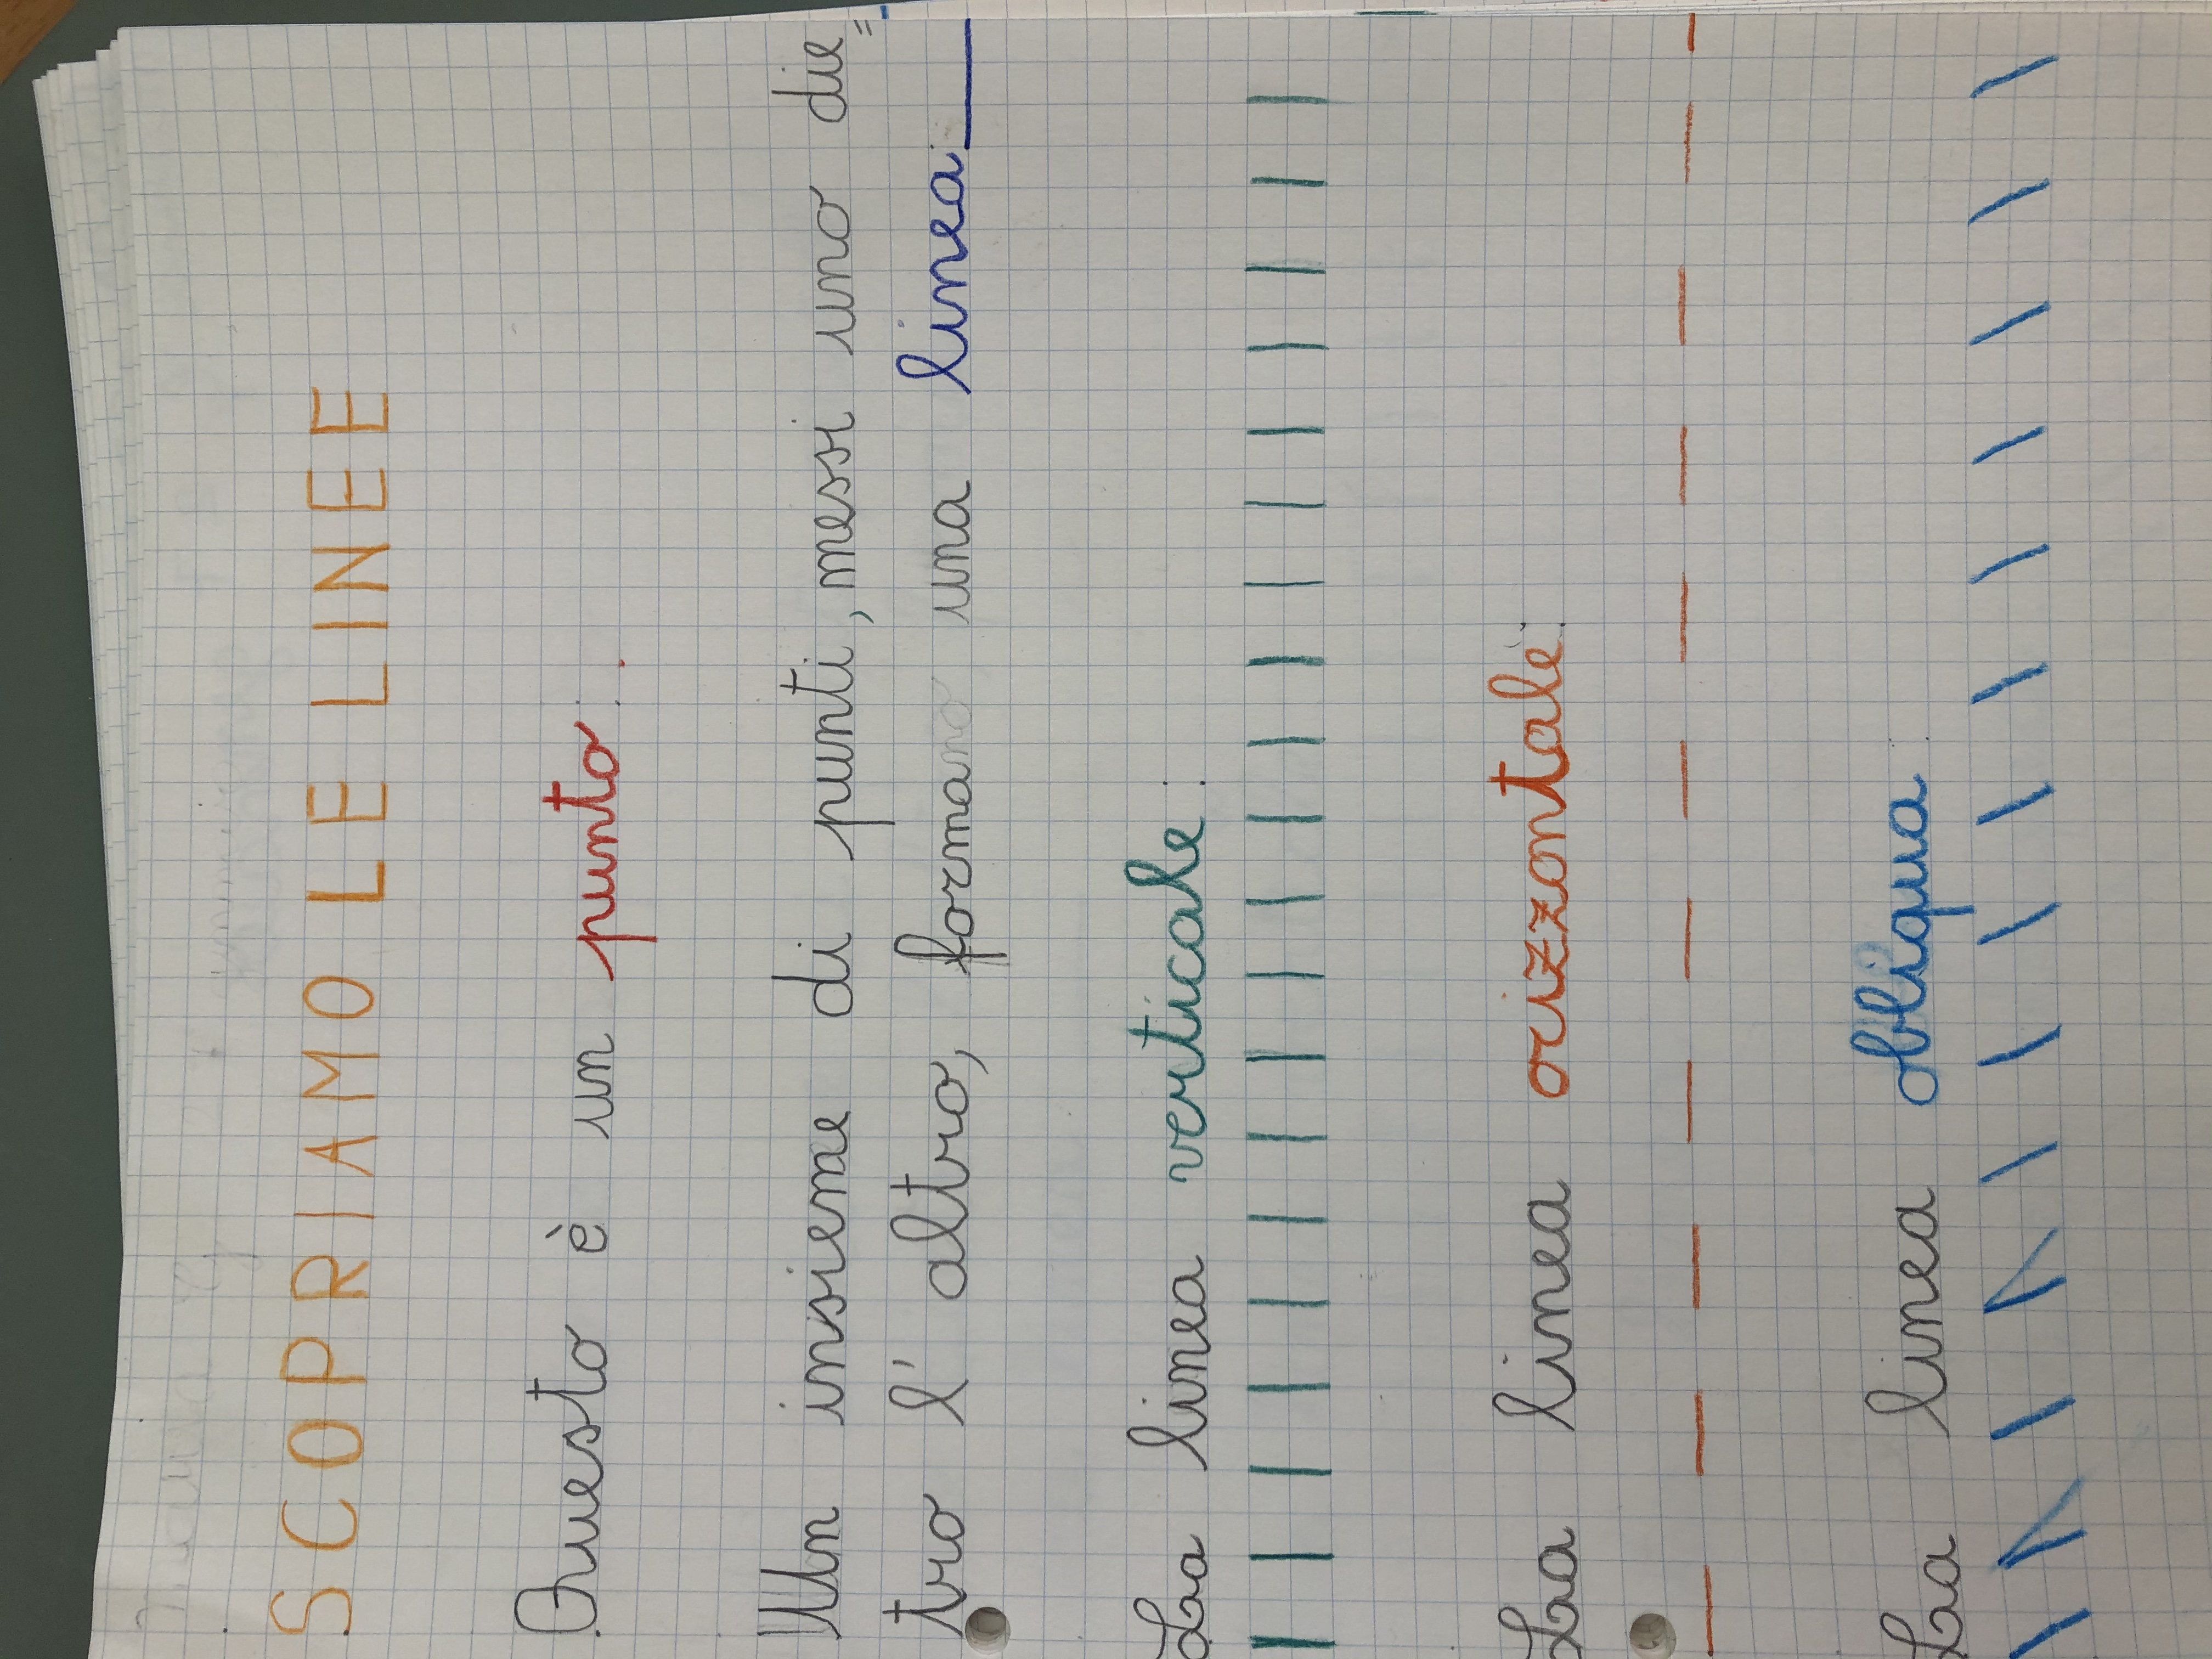 SCOPRIAMO LE LINEE
Questo è un punto: .
Un insieme di punti, messi uno die=
tro l'altro, formano una linea:
La linea verticale:
La linea orizzontale:
La linea obliqua: